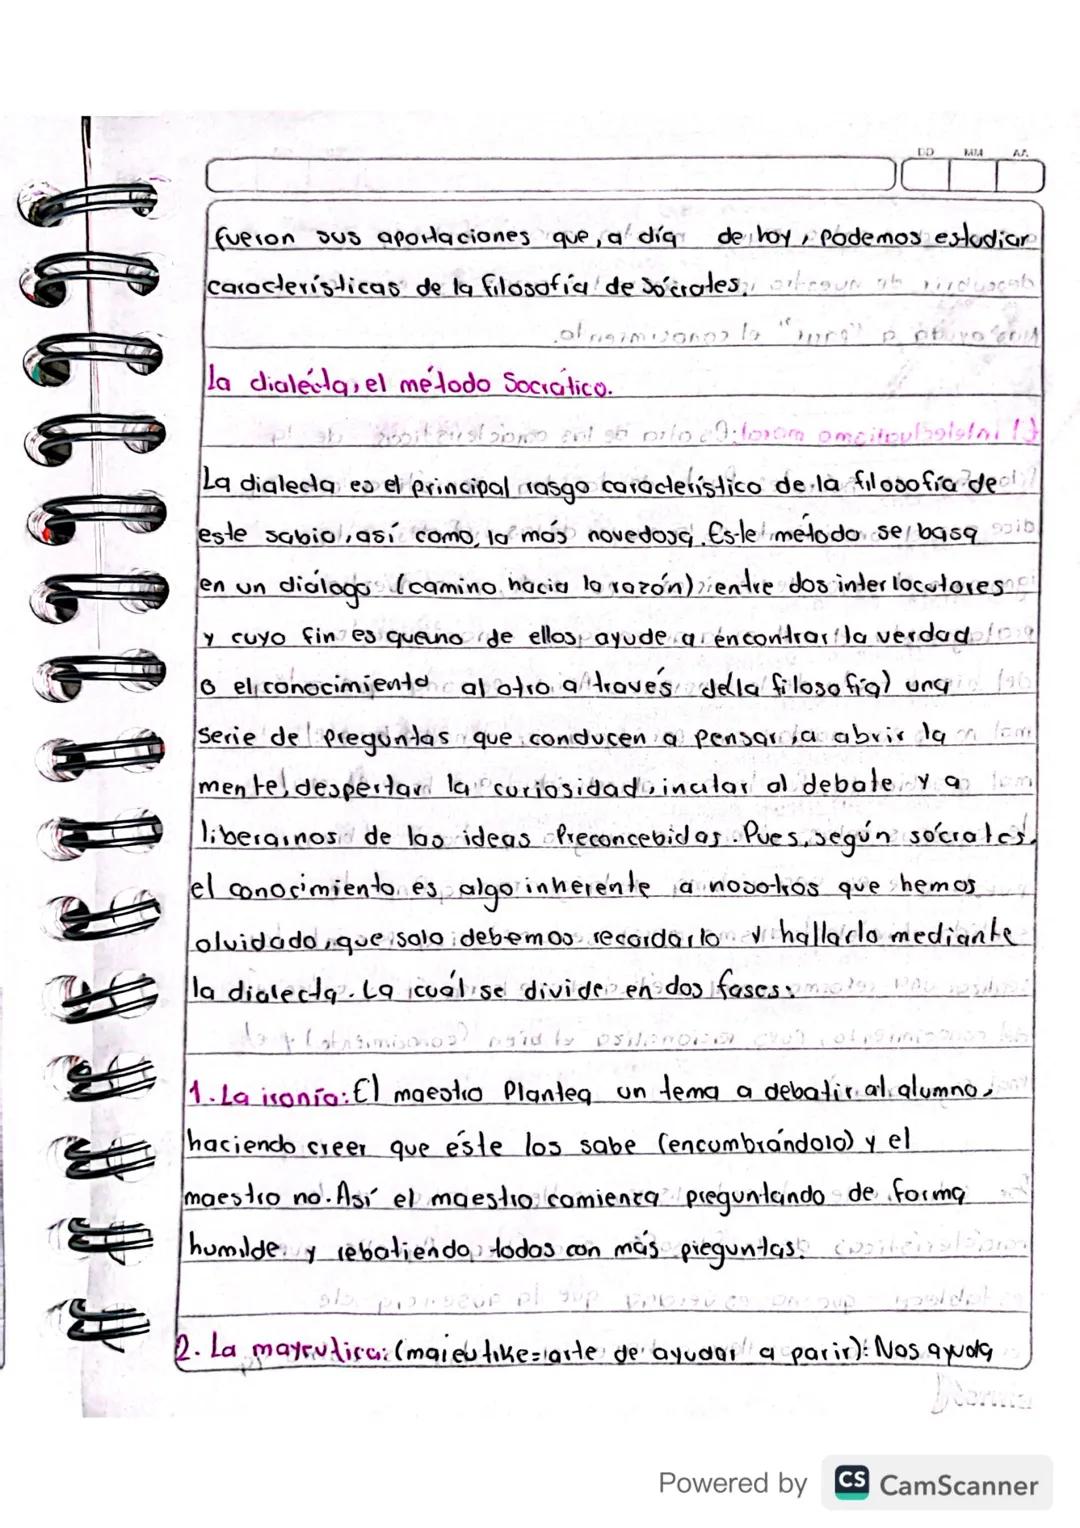 DD MM AA
fueron sus aportaciones que, a día de hoy, podemos estudiar
características de la filosofía de Sócrates.
la dialécta, el método Socrático.
La dialecta es el principal rasgo característico de la filosofía de
este sabio, así como, la más novedosa. Este método se basa
en un diálogo (camino hacia la razón) entre dos interlocutores
y cuyo fin es que uno de ellos ayude a encontrar la verdad
o el conocimiento al otro a través de (la filosofía) una
serie de preguntas que conducen a pensar, a abrir la
mente, despertar la curiosidad, incitar al debate y a
liberarnos de las ideas Preconcebidas. Pues, según sócrates,
el conocimiento es algo inherente a nosotros que hemos
olvidado, que solo debemos recordarlo y hallarlo mediante
la dialecta. La cuál se divide en dos fases:
1. La ironía: El maestro Plantea un tema a debatir al alumno,
haciendo creer que éste los sabe (encumbrándolo) y el
maestro no. Así el maestro comienza preguntando de forma
humilde y rebatiendo todas con más preguntas.
2. La mayeutica: (maieutike= arte de ayudar a parir): Nos ayuda
Powered by CS CamScanner